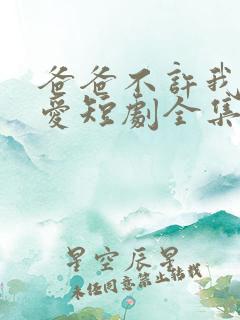 爸爸不許我
愛短劇全集
星空辰星
未经同意禁止转载